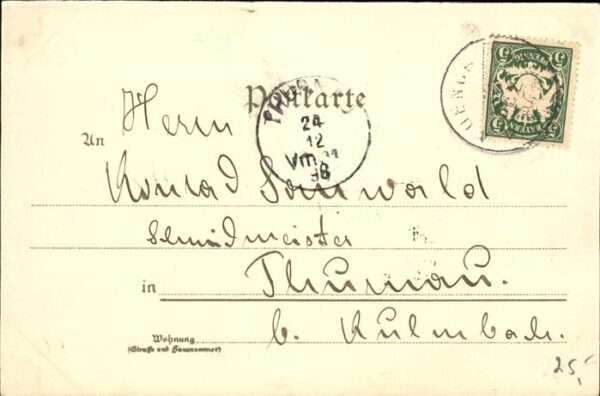 Postkarte
Herrn
An
Konrad Sonnwald
Schmidmeister
in Thurnau.
b. Kulmbach.
Wohnung
(Straße und Hausnummer)
24
12
Vm
98
5 5
BAYERN
25,-